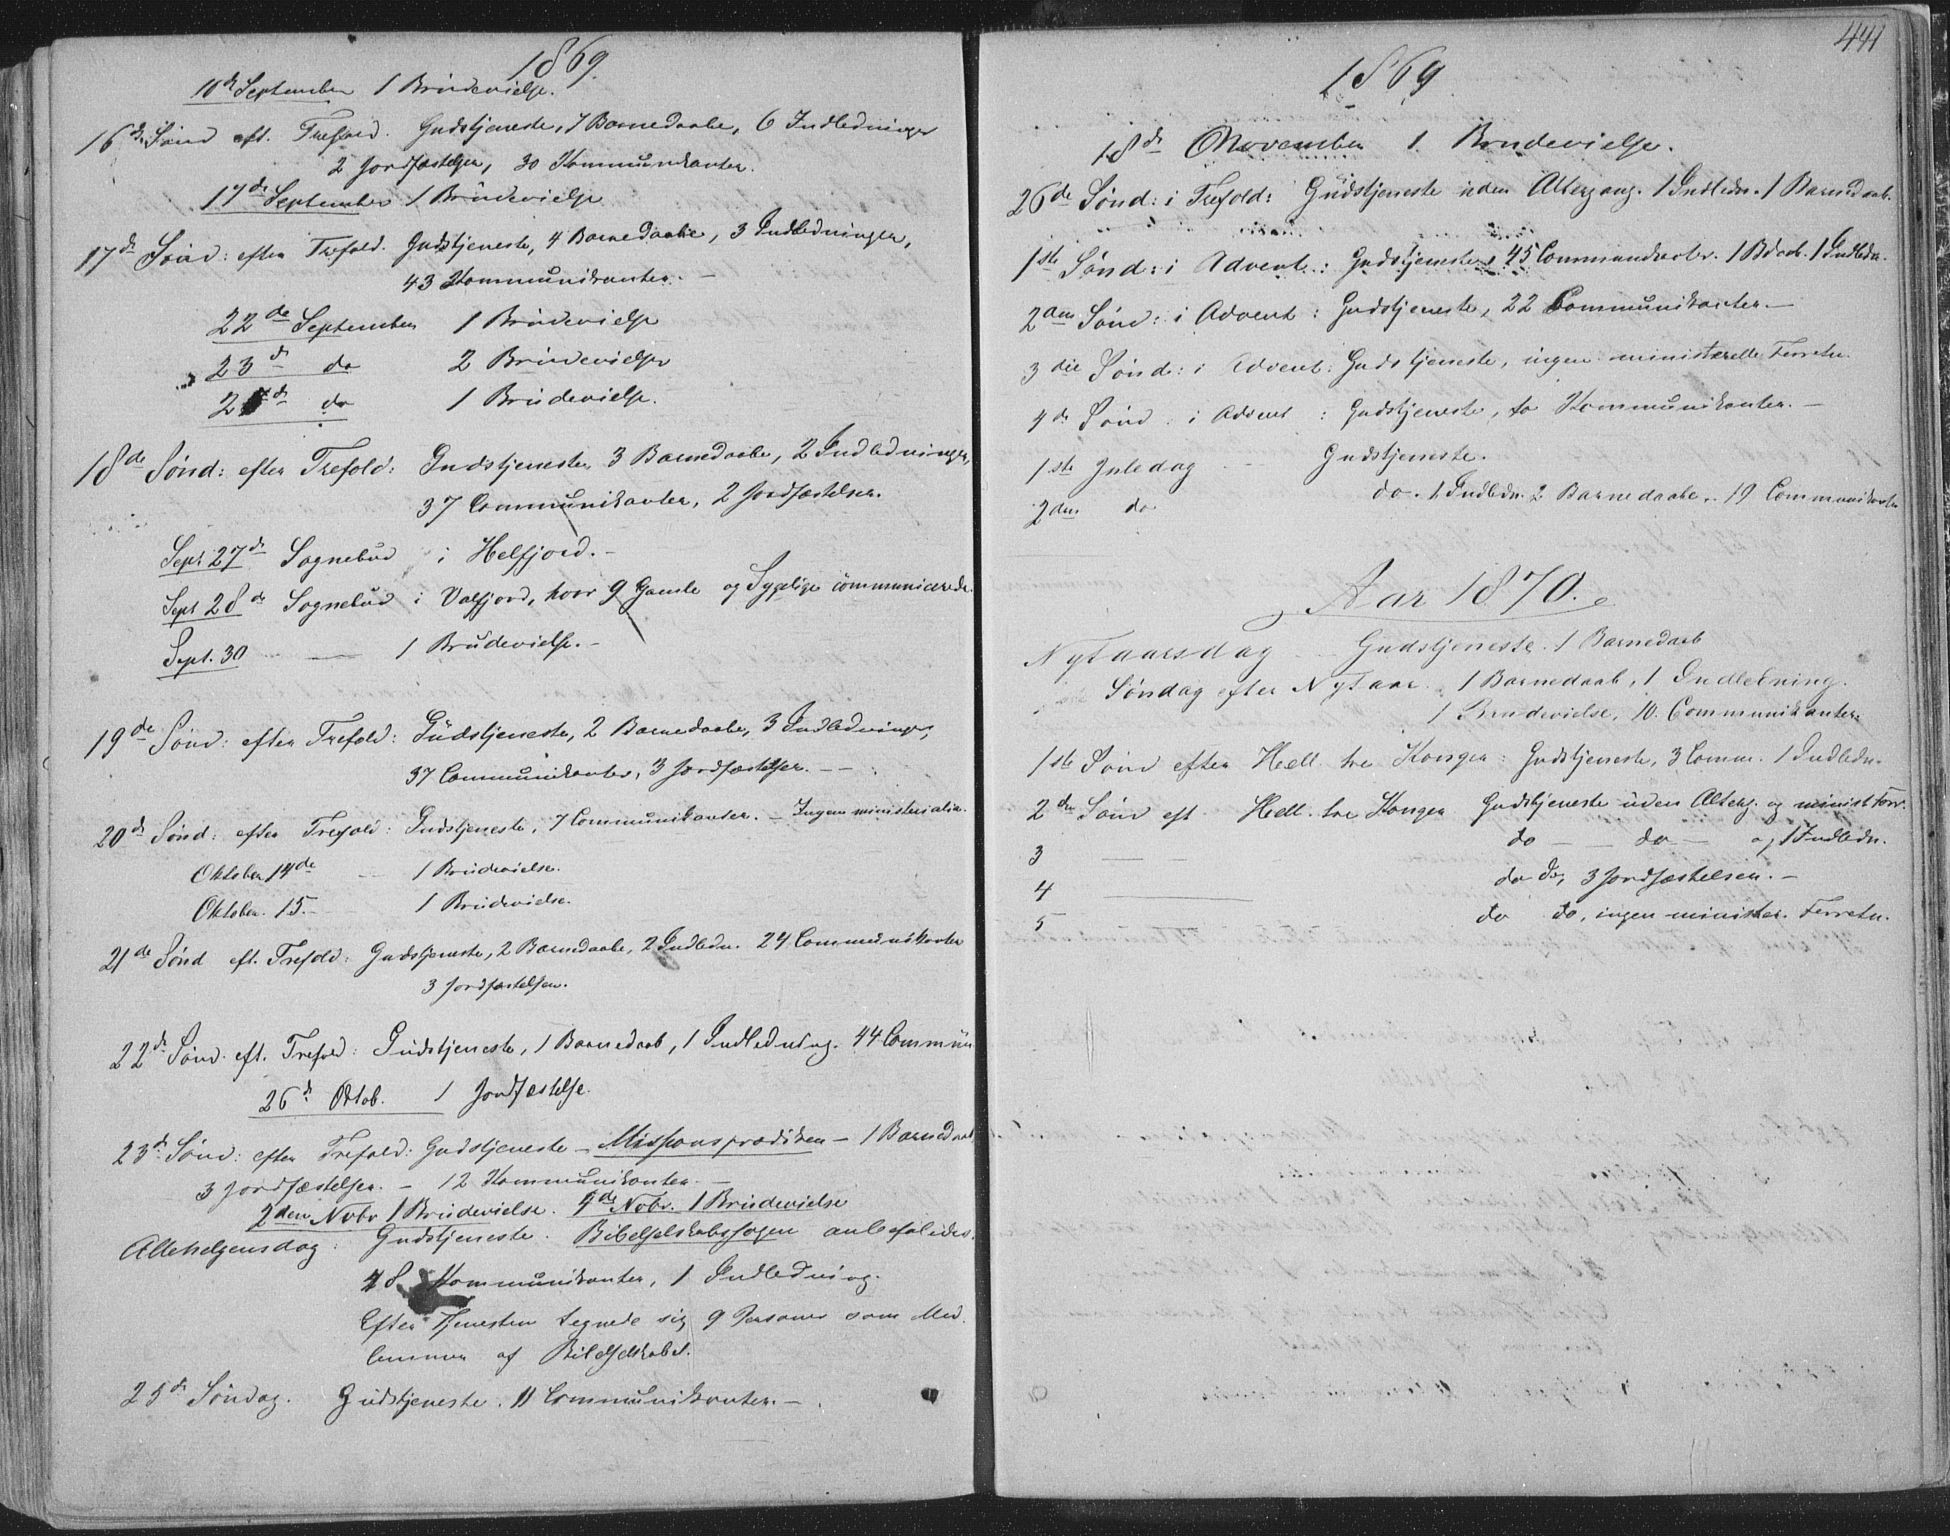 1869.
10de September 1 Brudevielse.
16de Sønd eft. Trefold. Gudstjeneste, 7 Barnedaabe, 6 Indledninger
2 Jordfæstelser, 30 Kommunikanter.
17de September 1 Brudevielse
17de Sønd: efter Trefold. Gudstjeneste, 4 Barnedaabe, 3 Indledninger,
43 Kommunikanter. –
22de September 1 Brudevielse
23de do 2 Brudevielser
2 de do 1 Brudevielse.
18de Sønd: efter Trefold: Gudstjeneste, 3 Barnedaabe, 2 Indledninger,
37 Communikanter, 2 Jordfæstelser.
Sept 27de Sognebud i Helfjord. –
Sept 28de Sognebud i Valfjord, hvor 9 Gamle og Sygelige communicerede.
Sept. 30 — 1 Brudevielse. –
19de Sønd: efter Trefold: Gudstjeneste, 2 Barnedaabe, 3 Indledninger,
37 Communikanter, 3 Jordfæstelser. – –
20de Sønd: efter Trefold: Gudstjeneste, 7 Communikanter. – Ingen ministerialia.
Oktober 14de — 1 Brudevielse.
Oktober. 15. — 1 Brudevielse.
21de Sønd eft. Trefold: Gudstjeneste, 2 Barnedaabe, 2 Indledn. 24 Communikanter
3 Jordfæstelser.
22de Sønd. eft. Trefold: Gudstjeneste, 1 Barnedaab, 1 Indledning. 44 Commun
26de Oktob. 1 Jordfæstelse.
23de Sønd: efter Trefold: Gudstjeneste – Missionsprædiken – 1 Barnedaab
3 Jordfæstelser. – 12 Kommunikanter. –
2den Novbr 1 Brudevielse. 4de Novbr. 1 Brudevielse
Allehelgensdag: Gudstjeneste. Bibelselskabssagen anbefaledes.
48 Kommunikanter, 1 Indledning.
Efter Tjenesten tegnede sig 9 Personer som Med
lemmer af Bibelselskabet.
25de Søndag. Gudstjeneste. 11 Communikanter. –
441
1869
18de November 1 Brudevielse.
26de Sønd: i Trefold: Gudstjeneste uden Altergang. 1 Indledn. 1 Barnedaab.
1ste Sønd: i Advent: Gudstjeneste, 45 Communikanter. 1 Bdaab. 1 Indledn.
2den Sønd: i Advent: Gudstjeneste, 22 Communikanter –
3die Sønd: i Advent: Gudstjeneste, ingen ministerielle Forretn.
4de Sønd. i Advent: Gudstjeneste, to Kommunikanter. –
1ste Juledag Gudstjeneste.
2den do do. 1 Indledn. 2 Barnedaabe, 19 Communikanter
Aar 1870.
Nytaarsdag Gudstjeneste. 1 Barnedaab
Søndag efter Nytaar. 1 Barnedaab, 1 Indledning.
1 Brudevielse, 10. Communikanter.
1ste Sønd efter Hell. tre Konger: Gudstjeneste, 3 Comm. 1 Indledn.
2den Sønd eft Hell. tre Konger Gudstjeneste uden Alterg. og minist Forr.
3 — do — do — og 1 Indledn.
4 — do do, 3 Jordfæstelser. –
5 do do, ingen minister. Forretn.